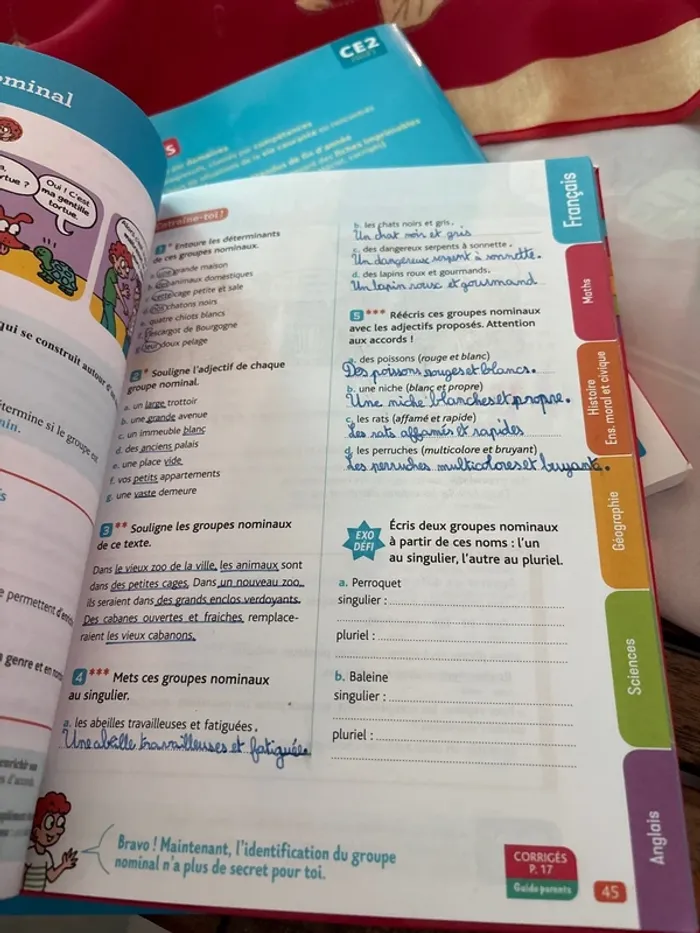 ominal
Oui ! C'est
ma gentille
tortue.
CE2
qui se construit autour d'un
étermine si le groupe est
permettent d'enrichir
genre et en
enrichir un
Entraîne-toi !
1 * Entoure les déterminants
de ces groupes nominaux.
a. une grande maison
b. animaux domestiques
c. cette cage petite et sale
d. chatons noirs
e. quatre chiots blancs
f. l'escargot de Bourgogne
g. leur doux pelage
2 * Souligne l'adjectif de chaque
groupe nominal.
a. un large trottoir
b. une grande avenue
c. un immeuble blanc
d. des anciens palais
e. une place vide
f. vos petits appartements
g. une vaste demeure
3 ** Souligne les groupes nominaux
de ce texte.
Dans le vieux zoo de la ville, les animaux sont
dans des petites cages. Dans un nouveau zoo,
ils seraient dans des grands enclos verdoyants.
Des cabanes ouvertes et fraiches remplace-
raient les vieux cabanons.
4 *** Mets ces groupes nominaux
au singulier.
a. les abeilles travailleuses et fatiguées.
Une abeille travailleuses et fatiguée.
b. les chats noirs et gris.
Un chat noir et gris
c. des dangereux serpents à sonnette.
Un dangereux serpent à sonnette.
d. des lapins roux et gourmands.
Un lapin roux et gourmand
5 *** Réécris ces groupes nominaux
avec les adjectifs proposés. Attention
aux accords !
a. des poissons (rouge et blanc)
Des poissons rouges et blancs.
b. une niche (blanc et propre)
Une niche blanches et propre.
c. les rats (affamé et rapide)
Les rats affamés et rapides
d. les perruches (multicolore et bruyant)
Les perruches multicolores et bruyants.
EXO
DÉFI
Écris deux groupes nominaux
à partir de ces noms : l'un
au singulier, l'autre au pluriel.
a. Perroquet
singulier :
pluriel :
b. Baleine
singulier :
pluriel :
Bravo ! Maintenant, l'identification du groupe
nominal n'a plus de secret pour toi.
CORRIGÉS
P. 17
Guide parents
45
Français
Maths
Histoire
Ens. moral et civique
Géographie
Sciences
Anglais